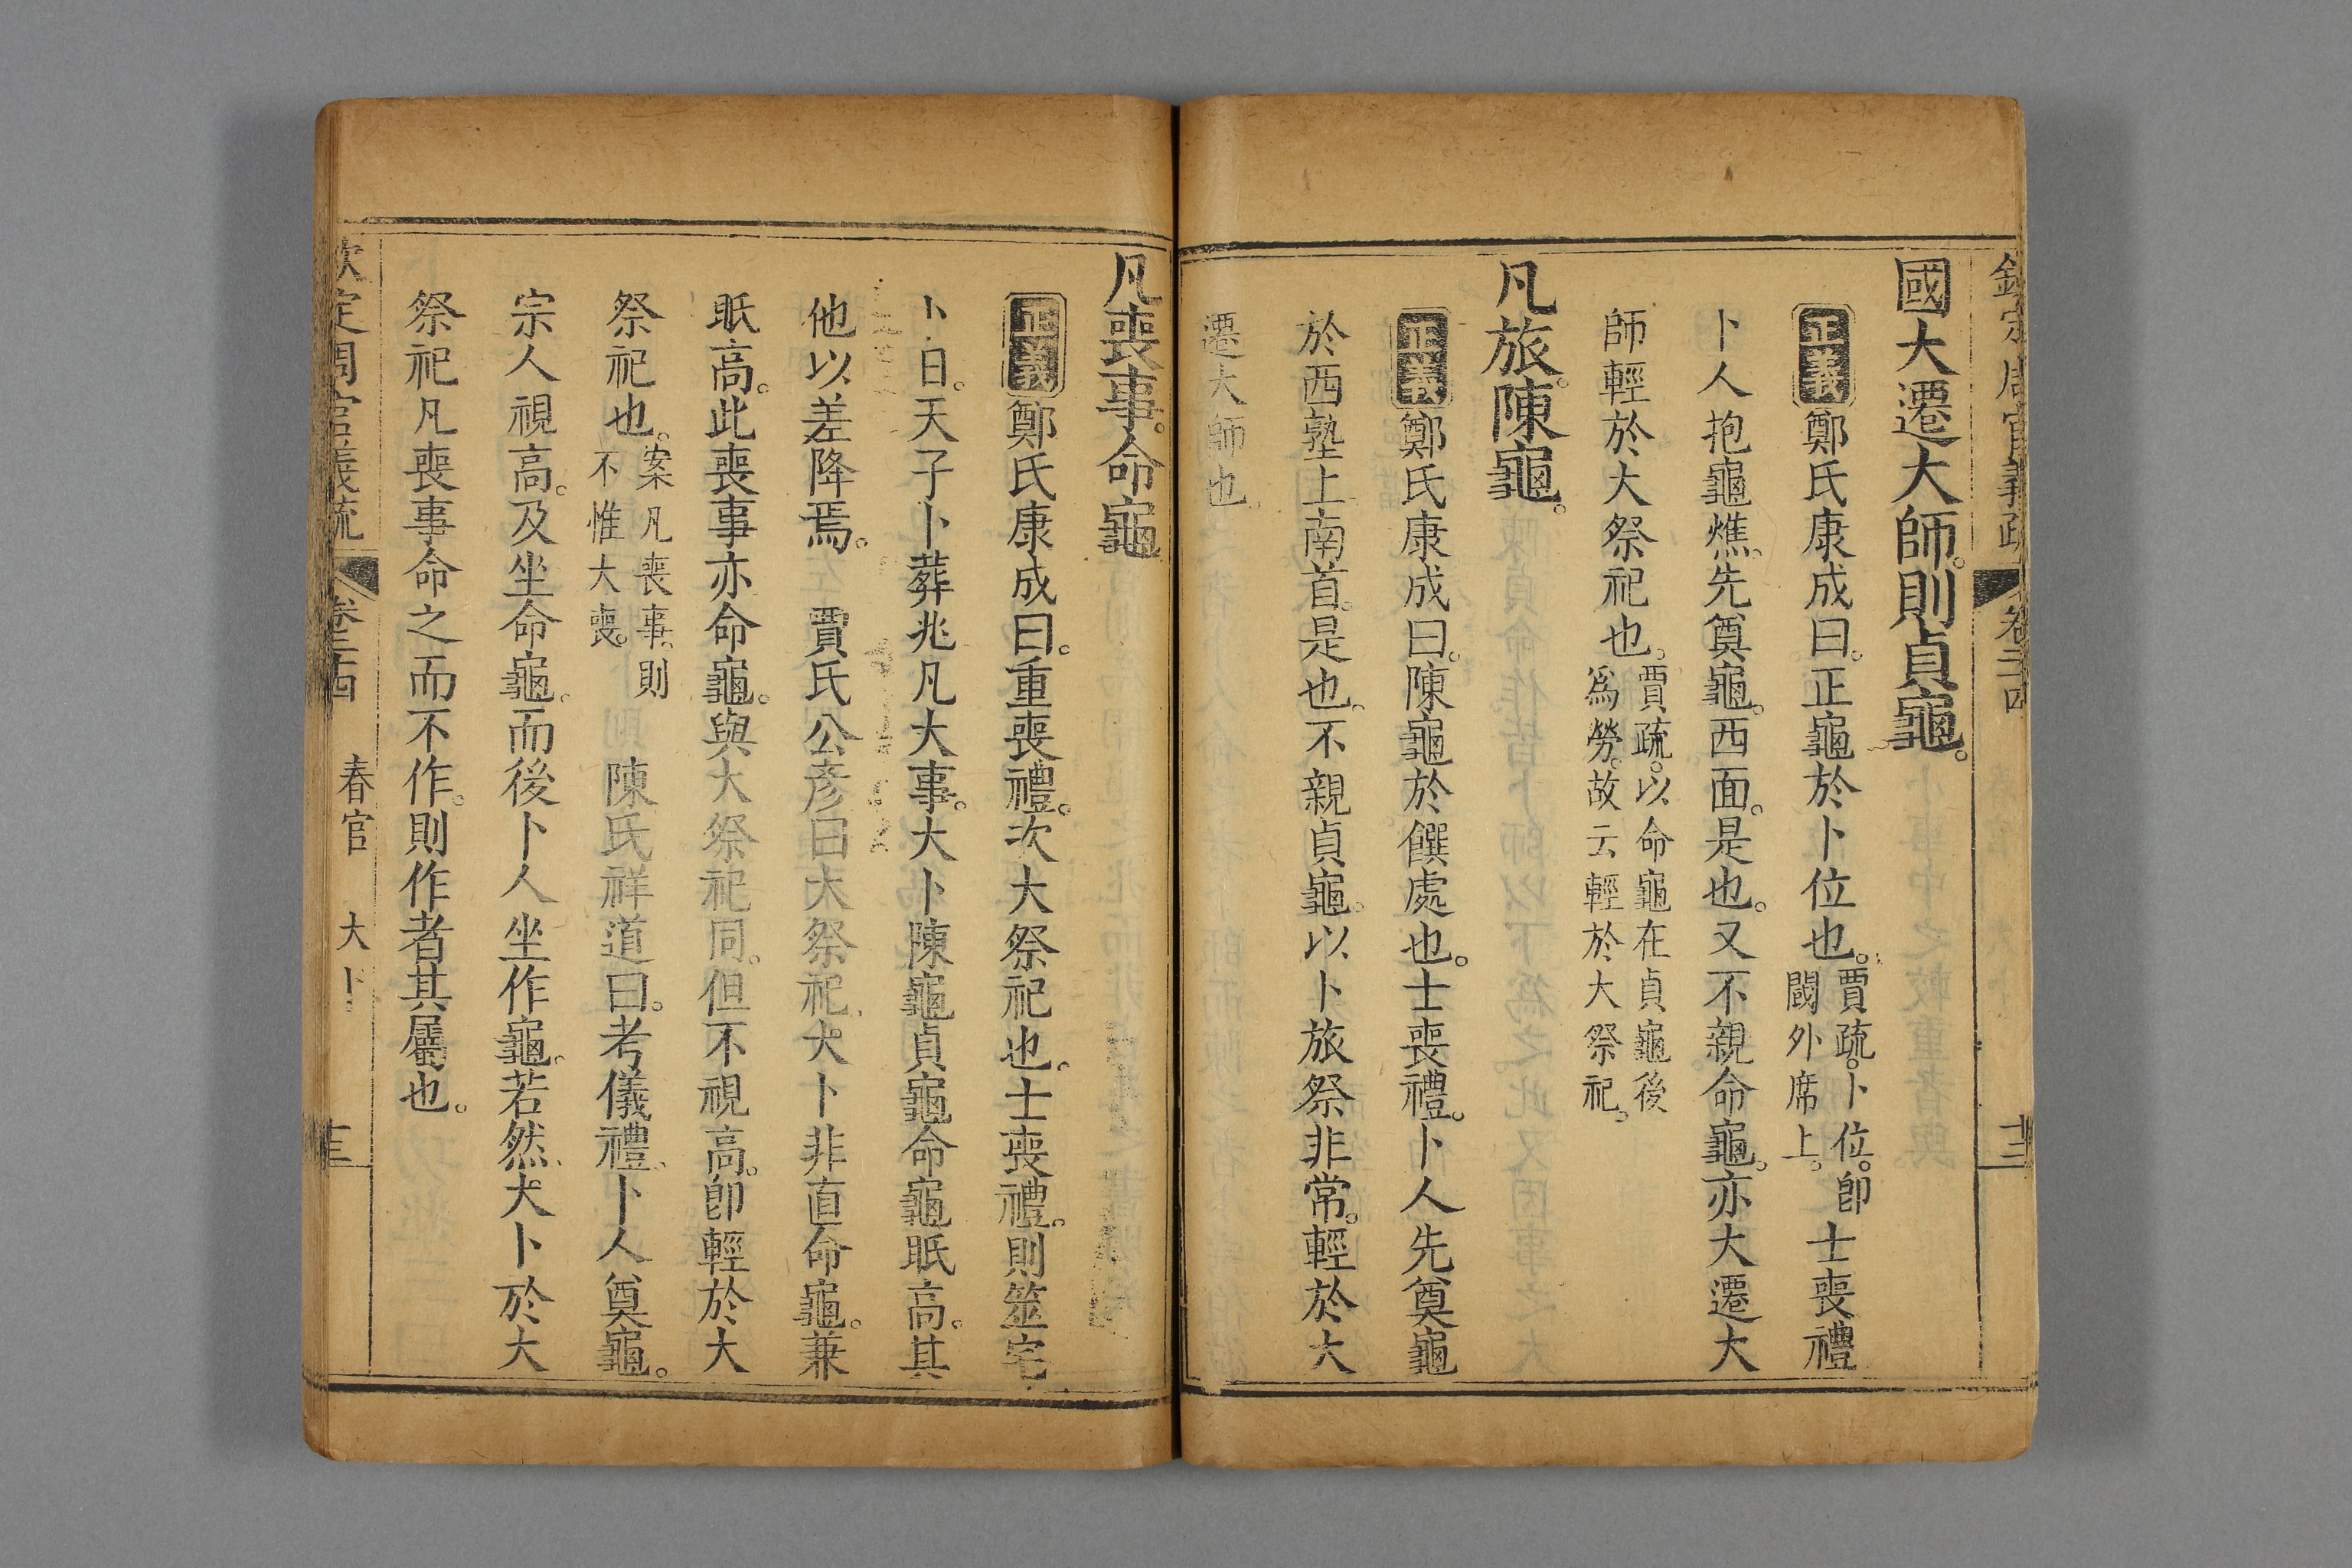 欽定周官義疏 卷二十四
國大遷大師。則貞龜。
正義鄭氏康成曰。正龜於卜位也。賈疏。卜位。卽閾外席上。士喪禮
卜人抱龜燋。先奠龜。西面。是也。又不親命龜。亦大遷大
師輕於大祭祀也。賈疏。以命龜在貞龜後爲勞。故云輕於大祭祀。
凡旅。陳龜。
正義鄭氏康成曰。陳龜於饌處也。士喪禮。卜人先奠龜
於西塾上南首。是也。不親貞龜。以卜旅祭非常。輕於大
遷大師也。
凡喪事。命龜
正義鄭氏康成曰。重喪禮。次大祭祀也。士喪禮。則筮宅
卜日。天子卜葬兆凡大事。大卜陳龜貞龜命龜眡高。其
他以差降焉。 賈氏公彥曰大祭祀。大卜非直命龜。兼
眡高。此喪事亦命龜。與大祭祀同。但不視高。卽輕於大
祭祀也。案凡喪事、則不惟大喪。 陳氏祥道曰。考儀禮、卜人奠龜。
宗人視高。及坐命龜。而後卜人坐作龜。若然、大卜於大
祭祀凡喪事命之而不作。則作者其屬也。
欽定周官義疏 卷二十四 春官 大卜